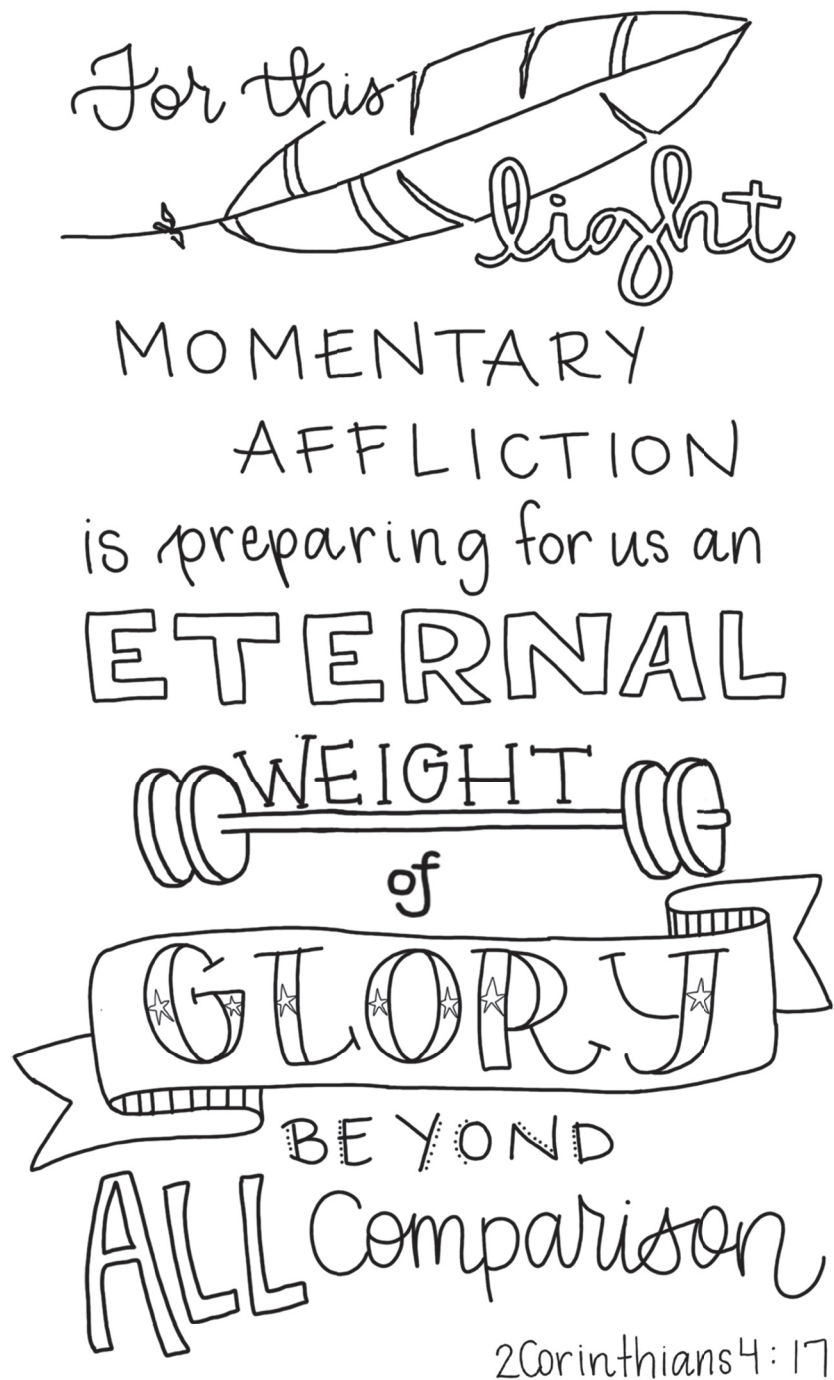 For this
light
MOMENTARY
AFFLICTION
is preparing for us an
ETERNAL
WEIGHT
of
GLORY
BEYOND
ALL Comparison
2Corinthians 4:17